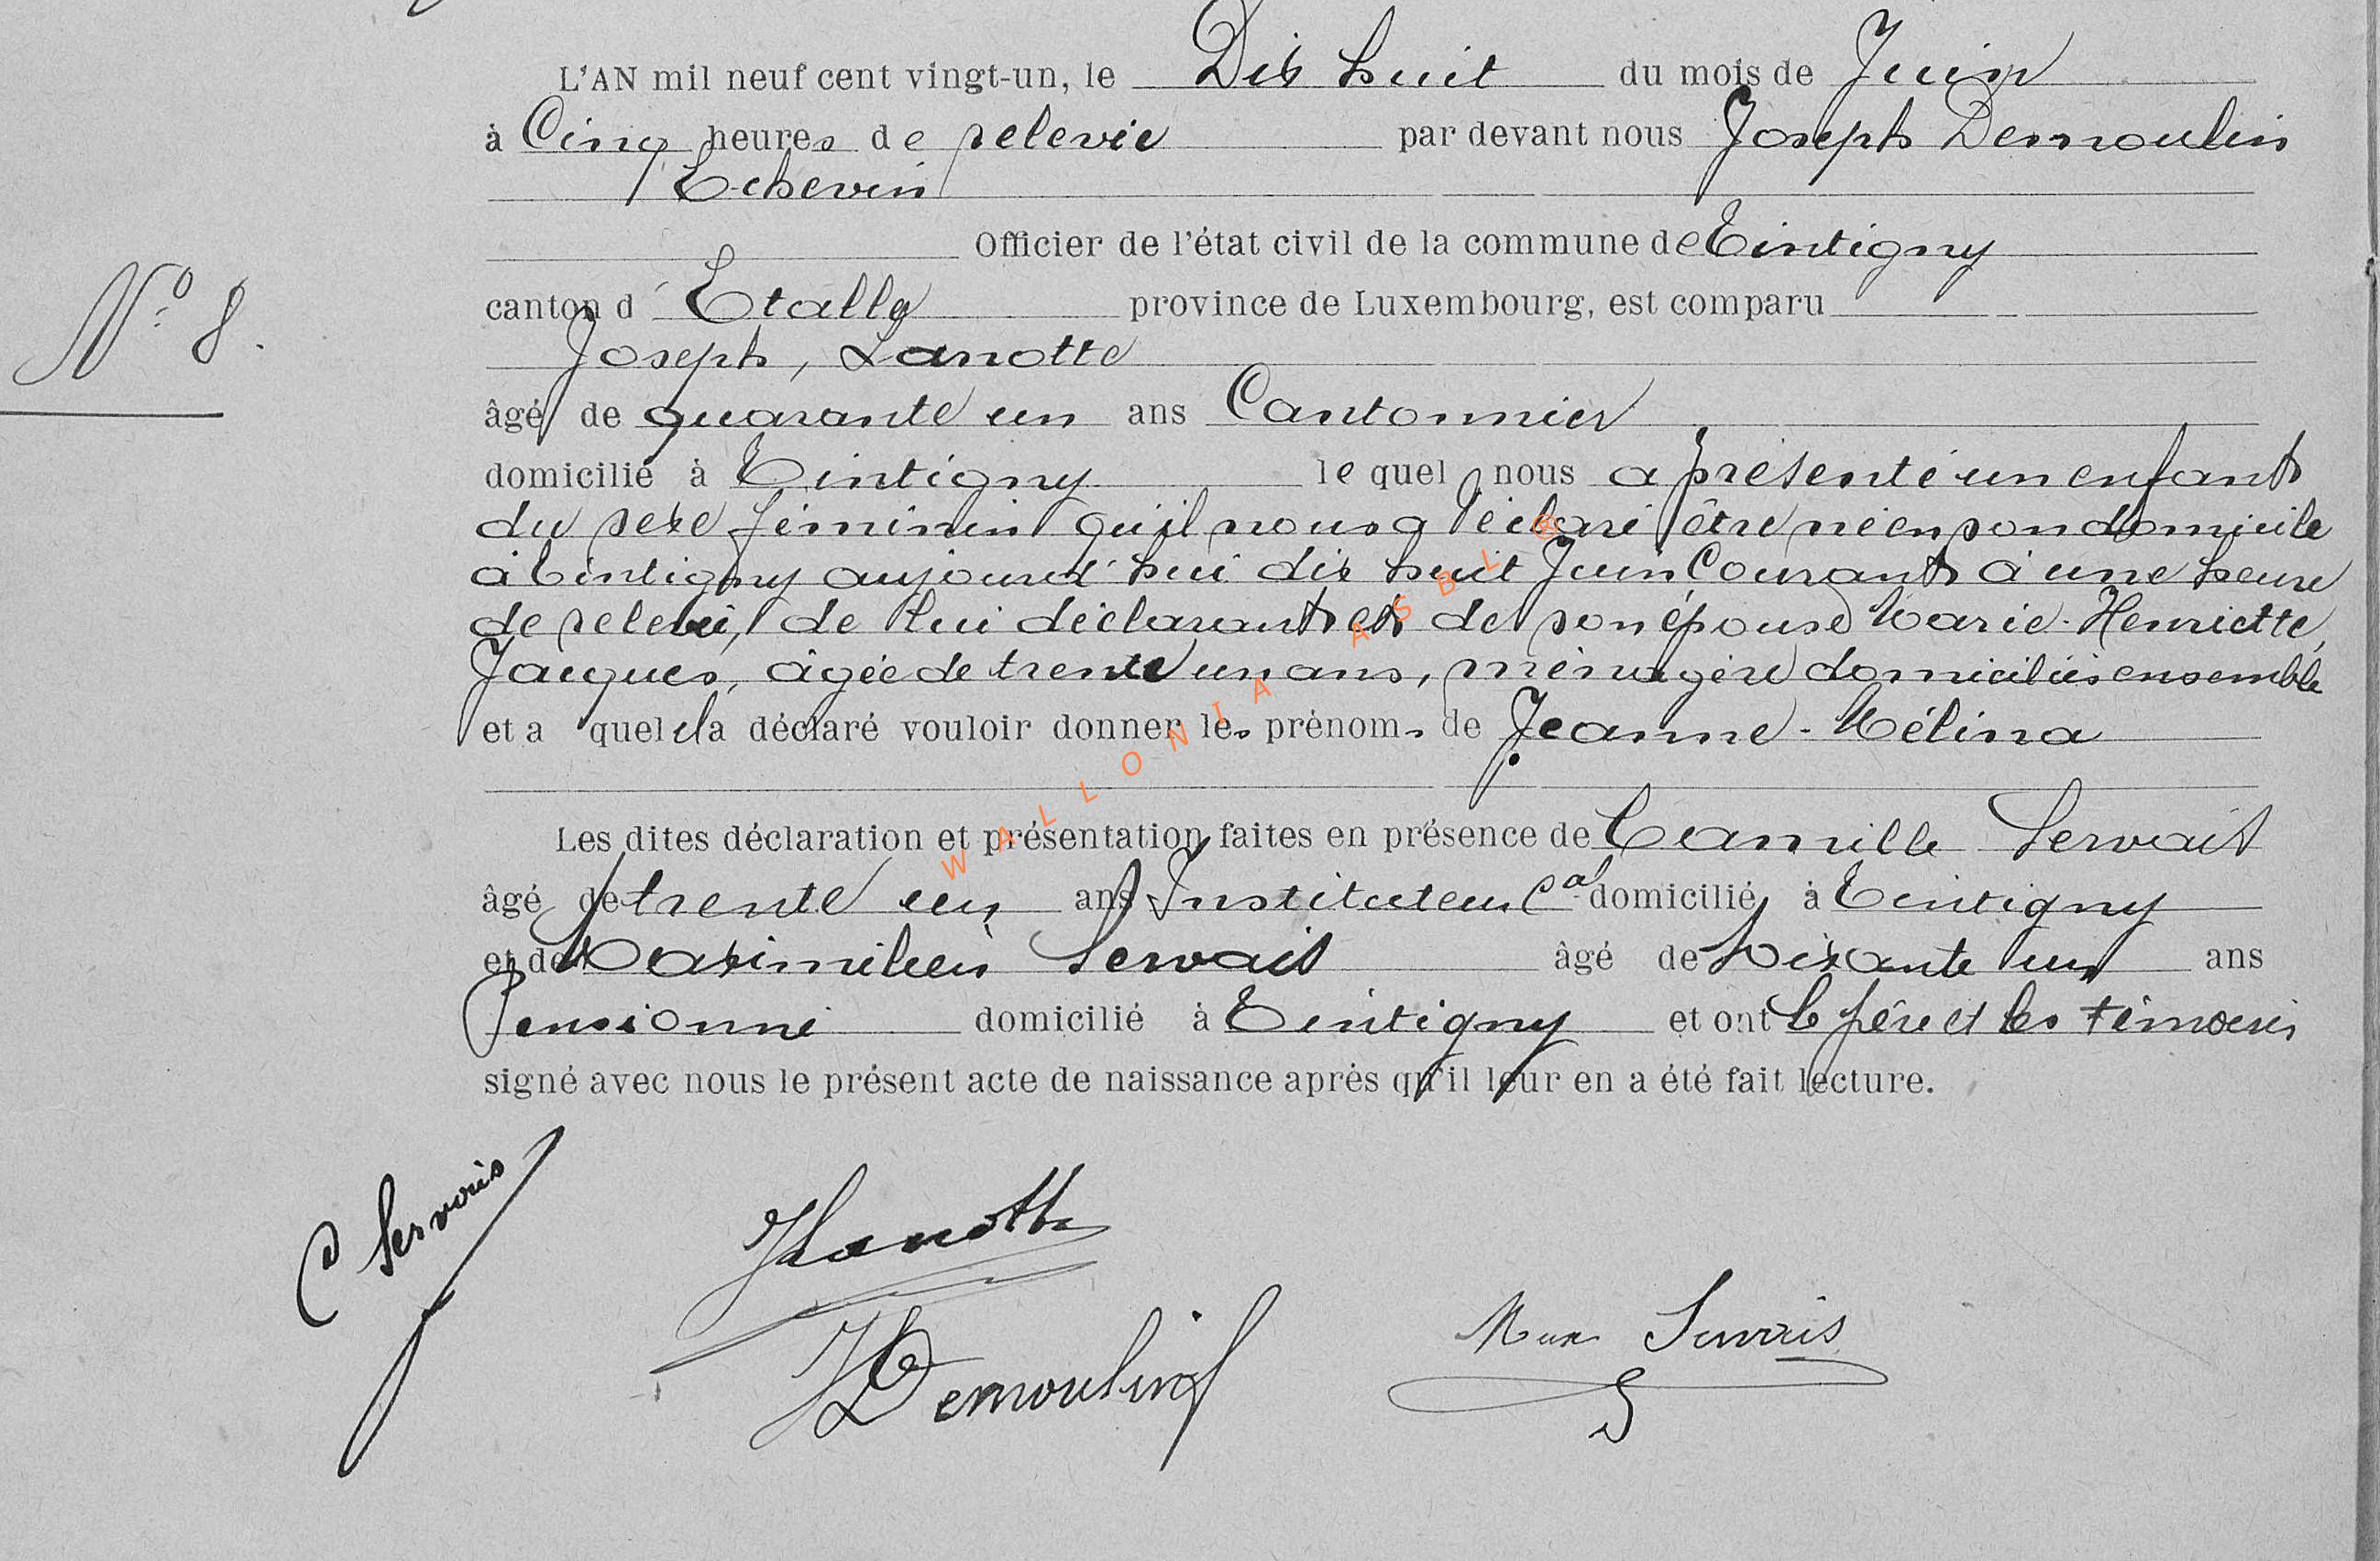 L'AN mil neuf cent vingt-un, le Dix huit du mois de Juin
à Cinq heures de relevée par devant nous Joseph Demoulin
Echevin
Officier de l'état civil de la commune de Tintigny
N° 8.
canton d' Etalle province de Luxembourg, est comparu
Joseph, Lanotte
âgé de quarante un ans Cantonnier
domicilié à Tintigny lequel nous a présenté un enfant
du sexe féminin qu'il nous a déclaré être né en son domicile
à Tintigny aujourd'hui dix huit Juin Courant à une heure
de relevée, de lui déclarant et de son épouse Marie-Henriette,
Jacques, âgée de trente un ans, ménagère domiciliés ensemble
et a quel il a déclaré vouloir donner les prénoms de Jeanne-Mélina
Les dites déclaration et présentation faites en présence de Camille Servais
âgé de trente un ans Instituteur Cal domicilié à Tintigny
et de Maximilien Servais âgé de Soixante un ans
Pensionné domicilié à Tintigny et ont le père et les témoins
signé avec nous le présent acte de naissance après qu'il leur en a été fait lecture.
C Servais
JLanotte
JDemoulin
Max Servais
WALLONIA ASBL ®